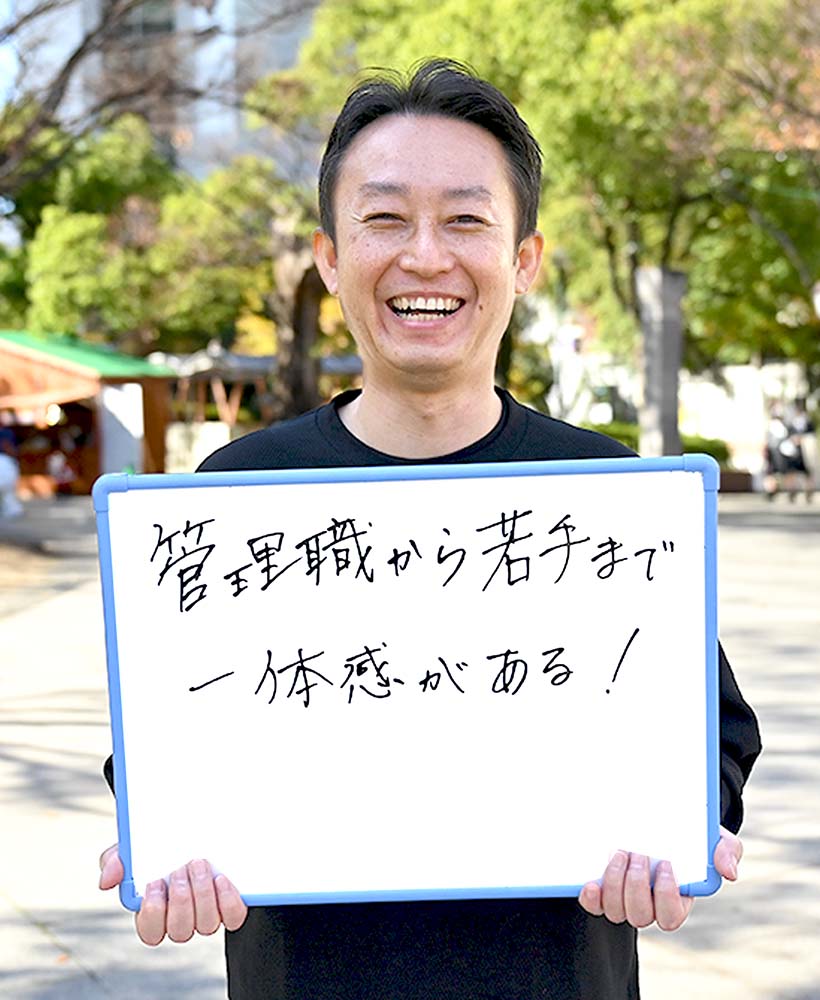 管理職から若手まで
一体感がある！